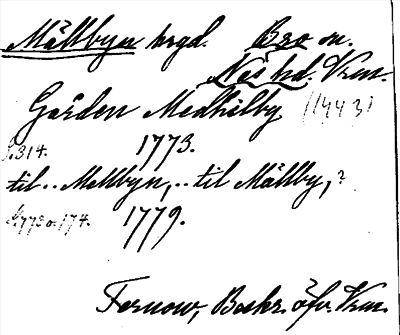 Mällbyn hrgd. Bro sn.
Näs hd. Vrm.
Gården Medhälby (1443)
S. 314. 1773.
til .. Mellbyn, .. til Mällby, ?
1779.
Fernow, Beskr. öfv. Vrm.